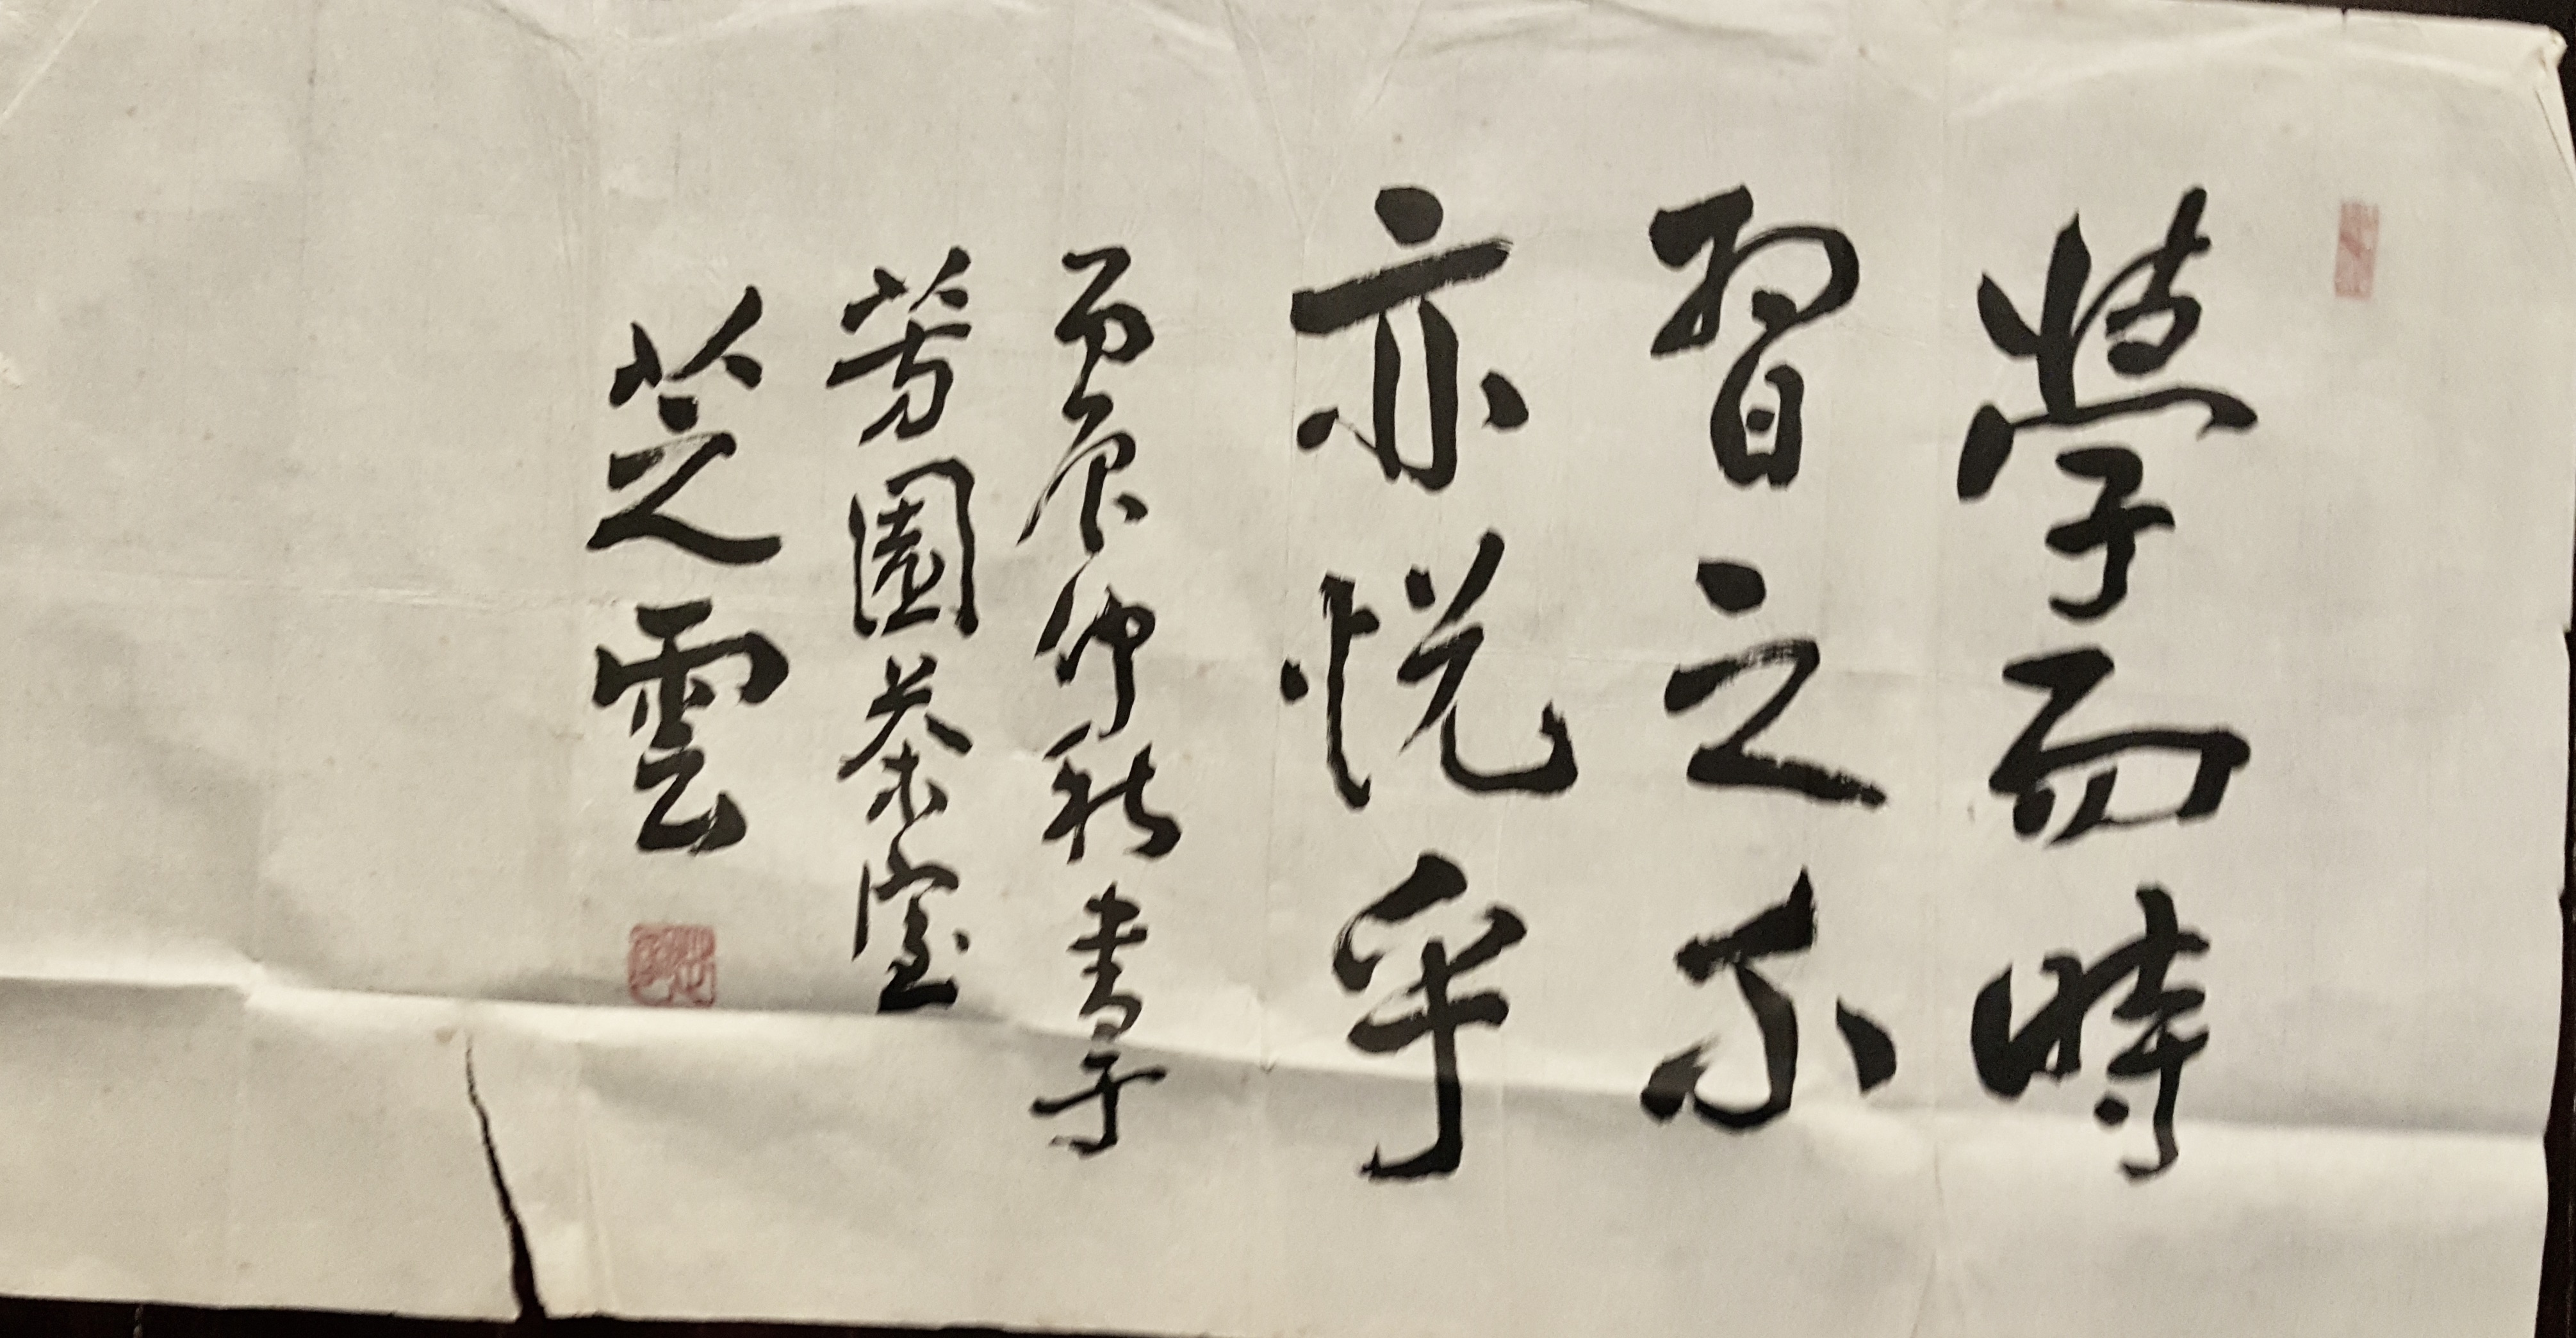 學而時
習之不
亦悦乎
丙辰仲秋書于
芳園茶室
芝雲